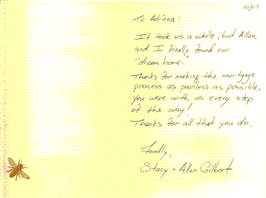 10/03
To Adriana:
It took us a while, but Allan
and I finally found our
"dream home."
Thanks for making the mortgage
process as painless as possible.
You were with us every step
of the way!
Thanks for all that you do.
Fondly,
Stacy + Allan Gilbert